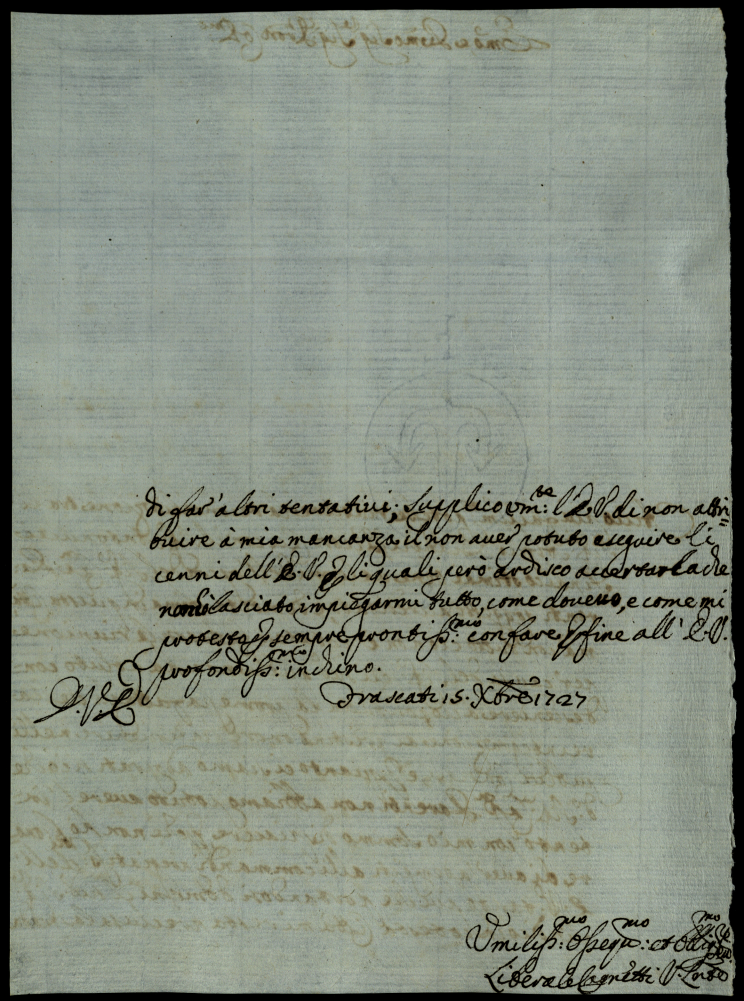 di far' altri tentativi; Supplico um:te l'E.V. di non attri=
buire à mia mancanza, il non aver potuto eseguire li
cenni dell'E.V. li quali però ardisco accertarla che
lasciato impiegarmi tutto, come dovevo, e come mi
protesto sempre prontiss:mo con fare fine all' E.V.
profondiss:mo inchino.
D.V.E.
Frascati 15. Xbre 1727
Umiliss:mo Ossequ:mo et Oblig:mo
Liberale